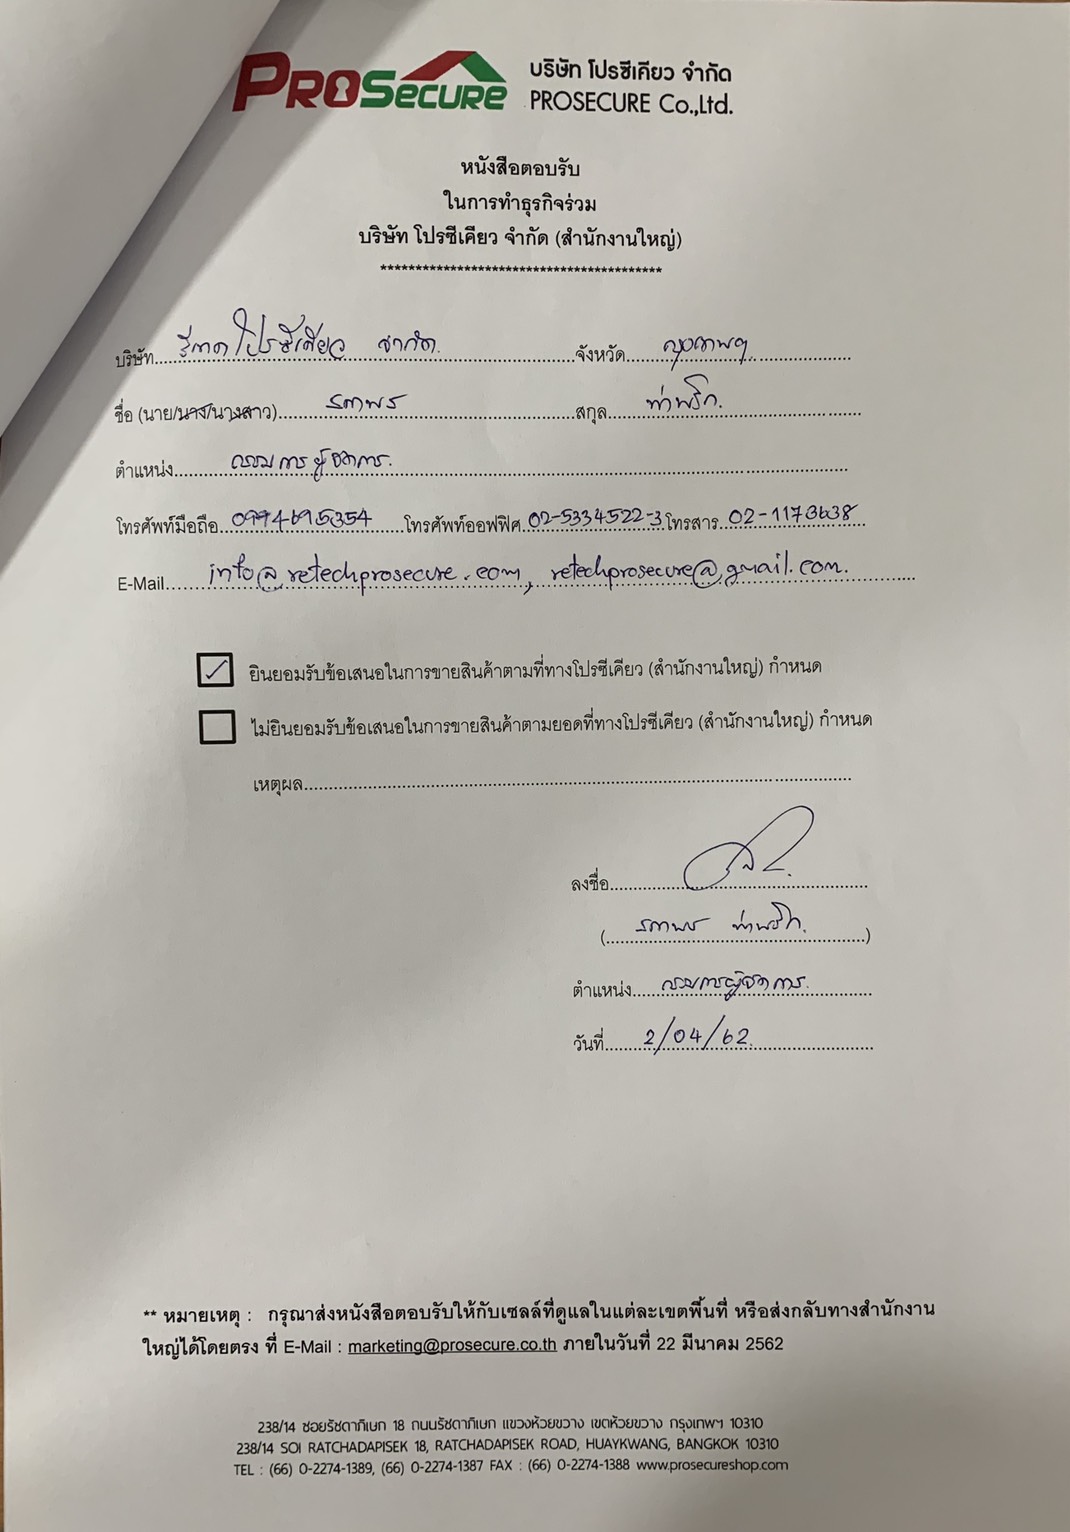 PROSECURE บริษัท โปรซีเคียว จำกัด
PROSECURE Co.,Ltd.
หนังสือตอบรับ
ในการทำธุรกิจร่วม
บริษัท โปรซีเคียว จำกัด (สำนักงานใหญ่)
****************************************
บริษัท รีเทค โปรซีเคียว จำกัด จังหวัด กรุงเทพฯ
ชื่อ (นาย/นาง/นางสาว) สกุล
ตำแหน่ง กรรมการผู้จัดการ
โทรศัพท์มือถือ โทรศัพท์ออฟฟิศ 02-5334522-3 โทรสาร 02-1173638
E-Mail info@retechprosecure.com, retechprosecure@gmail.com.
✓ ยินยอมรับข้อเสนอในการขายสินค้าตามที่ทางโปรซีเคียว (สำนักงานใหญ่) กำหนด
ไม่ยินยอมรับข้อเสนอในการขายสินค้าตามยอดที่ทางโปรซีเคียว (สำนักงานใหญ่) กำหนด
เหตุผล
ลงชื่อ
ตำแหน่ง กรรมการผู้จัดการ
วันที่ 2/04/62
** หมายเหตุ : กรุณาส่งหนังสือตอบรับให้กับเซลล์ที่ดูแลในแต่ละเขตพื้นที่ หรือส่งกลับทางสำนักงาน
ใหญ่ได้โดยตรง ที่ E-Mail : marketing@prosecure.co.th ภายในวันที่ 22 มีนาคม 2562
238/14 ซอยรัชดาภิเษก 18 ถนนรัชดาภิเษก แขวงห้วยขวาง เขตห้วยขวาง กรุงเทพฯ 10310
238/14 SOI RATCHADAPISEK 18, RATCHADAPISEK ROAD, HUAYKWANG, BANGKOK 10310
TEL : (66) 0-2274-1389, (66) 0-2274-1387 FAX : (66) 0-2274-1388 www.prosecureshop.com